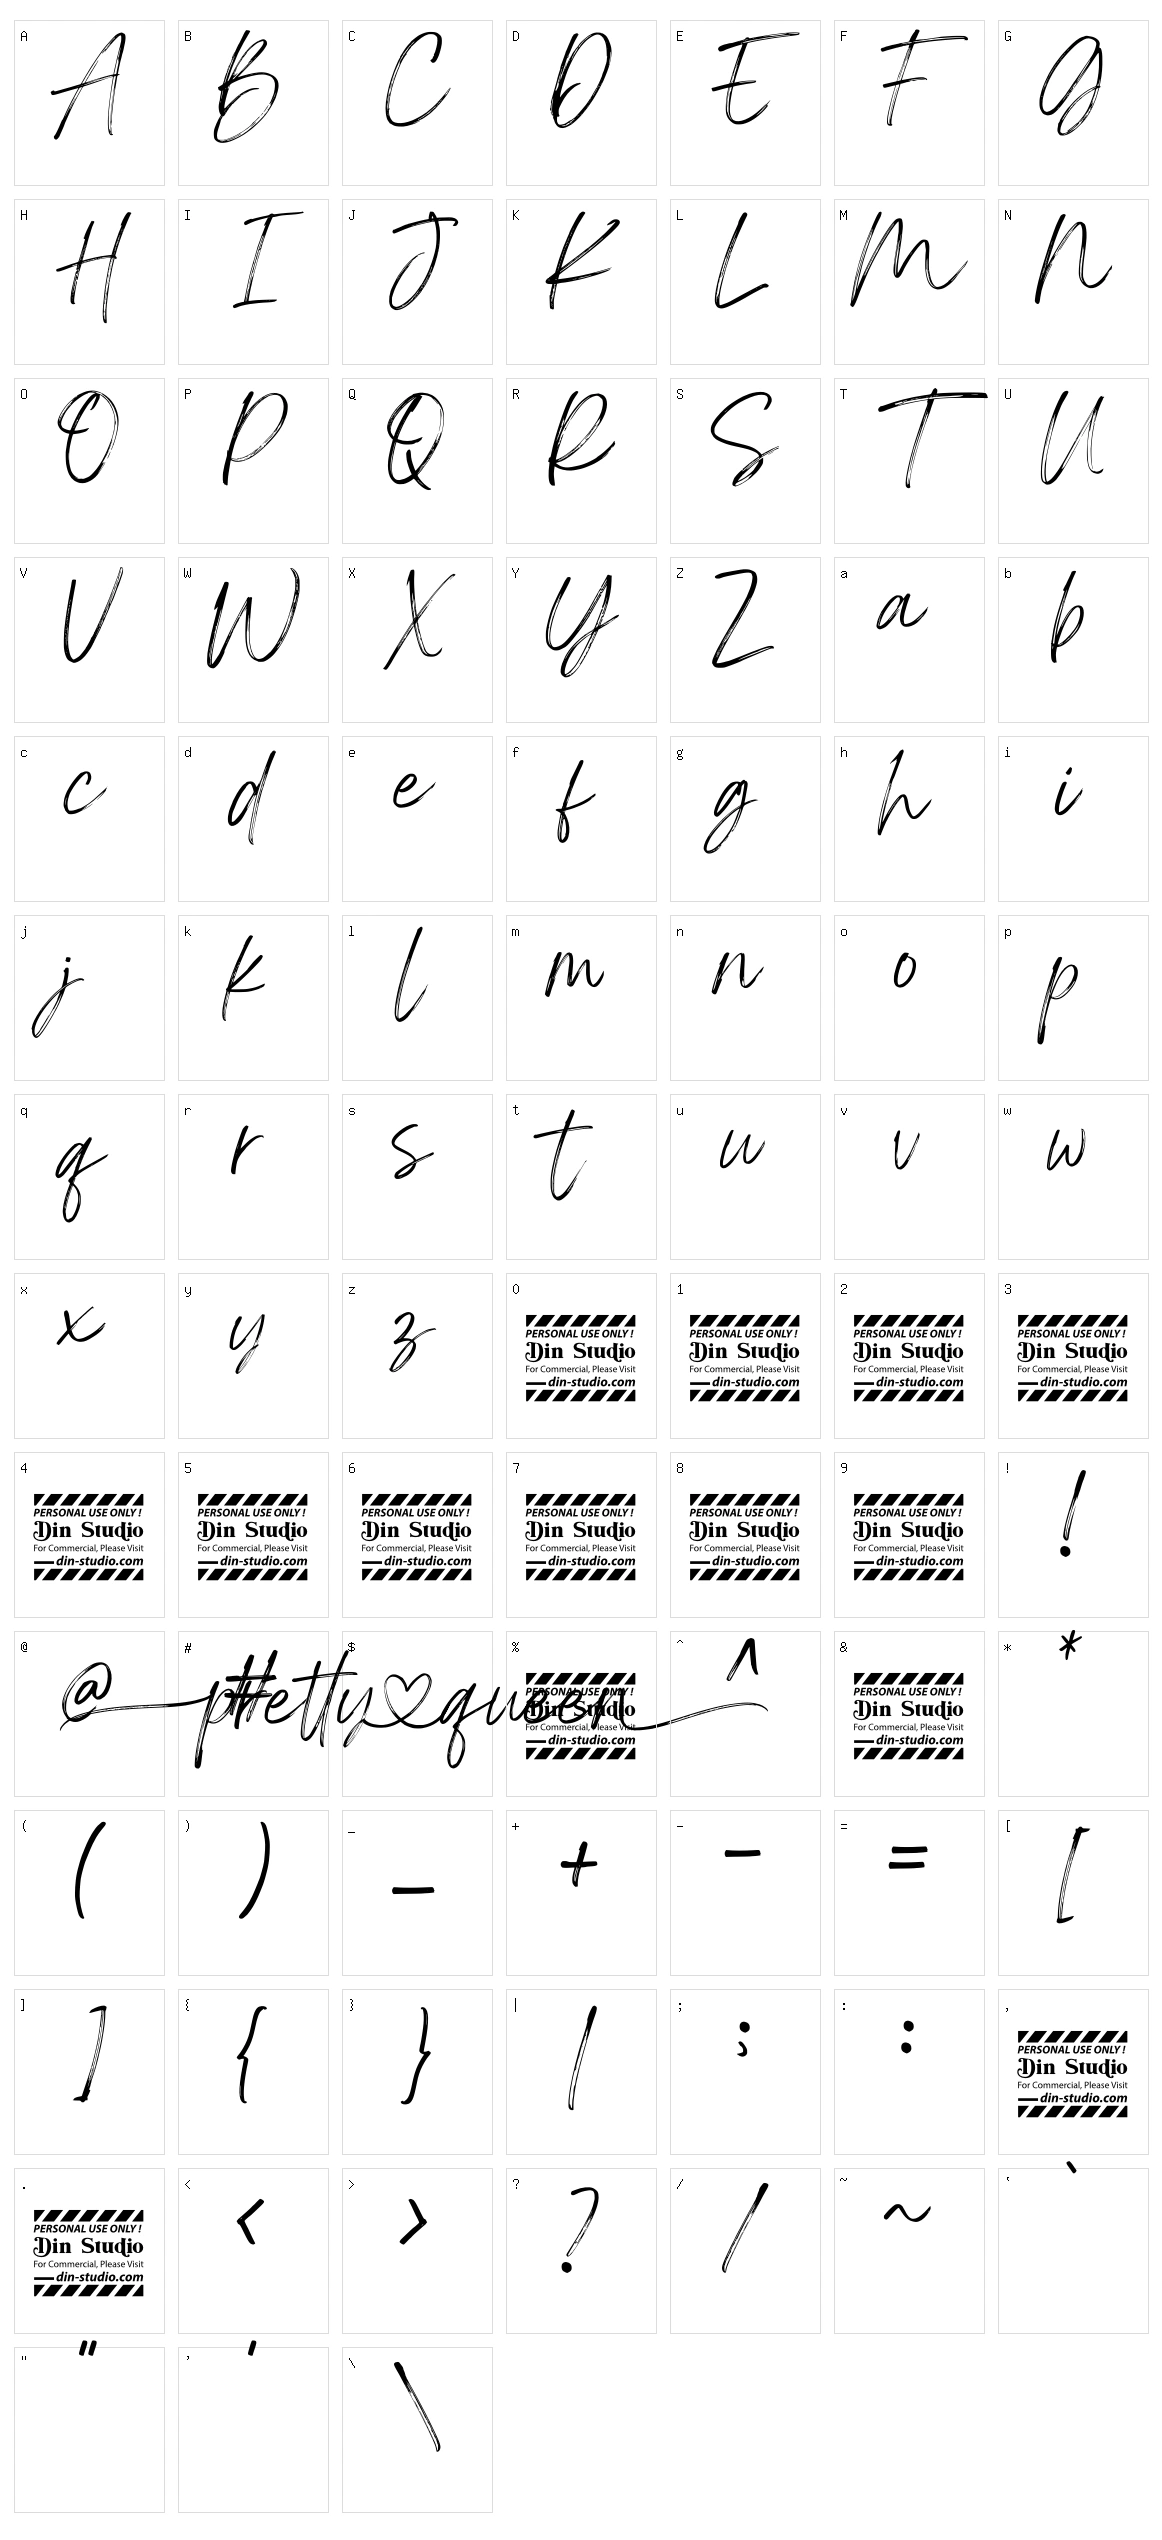 A B C D E F G
A B C D E F G
H I J K L M N
H I J K L M N
O P Q R S T U
O P Q R S T U
V W X Y Z a b
V W X Y Z a b
c d e f g h i
c d e f g h i
j k l m n o p
j k l m n o p
q r s t u v w
q r s t u v w
x y z 0 1 2 3
x y z
PERSONAL USE ONLY ! PERSONAL USE ONLY ! PERSONAL USE ONLY ! PERSONAL USE ONLY !
Din Studio Din Studio Din Studio Din Studio
For Commercial, Please Visit For Commercial, Please Visit For Commercial, Please Visit For Commercial, Please Visit
din-studio.com din-studio.com din-studio.com din-studio.com
4 5 6 7 8 9 !
!
PERSONAL USE ONLY ! PERSONAL USE ONLY ! PERSONAL USE ONLY ! PERSONAL USE ONLY ! PERSONAL USE ONLY ! PERSONAL USE ONLY !
Din Studio Din Studio Din Studio Din Studio Din Studio Din Studio
For Commercial, Please Visit For Commercial, Please Visit For Commercial, Please Visit For Commercial, Please Visit For Commercial, Please Visit For Commercial, Please Visit
din-studio.com din-studio.com din-studio.com din-studio.com din-studio.com din-studio.com
@ # $ % ^ & *
@ # pretty queen ^ *
PERSONAL USE ONLY ! PERSONAL USE ONLY !
Din Studio Din Studio
For Commercial, Please Visit For Commercial, Please Visit
din-studio.com din-studio.com
( ) _ + - = [
( ) _ + - = [
] { } | ; : ,
] { } | ; :
PERSONAL USE ONLY !
Din Studio
For Commercial, Please Visit
din-studio.com
. < > ? / ~ `
< > ? / ~ `
PERSONAL USE ONLY !
Din Studio
For Commercial, Please Visit
din-studio.com
" ' \
" ' \